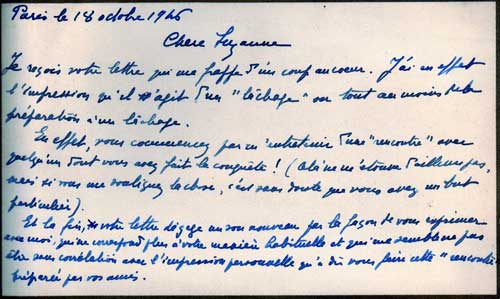 Paris le 18 octobre 1946
Chere Suzanne
Je reçois votre lettre qui me frappe d'un coup au coeur. J'ai en effet
l'impression qu'il s'agit d'un "lâchage" ou tout au moins de la
préparation d'un lâchage.
En effet, vous commencez par m'entretenir d'une "rencontre" avec
quelqu'un dont vous avez fait la conquête ! (Cela ne m'étonne d'ailleurs pas,
mais si vous me soulignez la chose, c'est sans doute que vous avez un but
particulier).
Et la fin, votre lettre dégage un son nouveau par la façon de vous exprimer
avec moi, qui ne correspond plus à votre manière habituelle et qui me semble ne pas
être sans corrélation avec l'impression personnelle qu'a dû vous faire cette "rencontre"
préparée par vos amis.